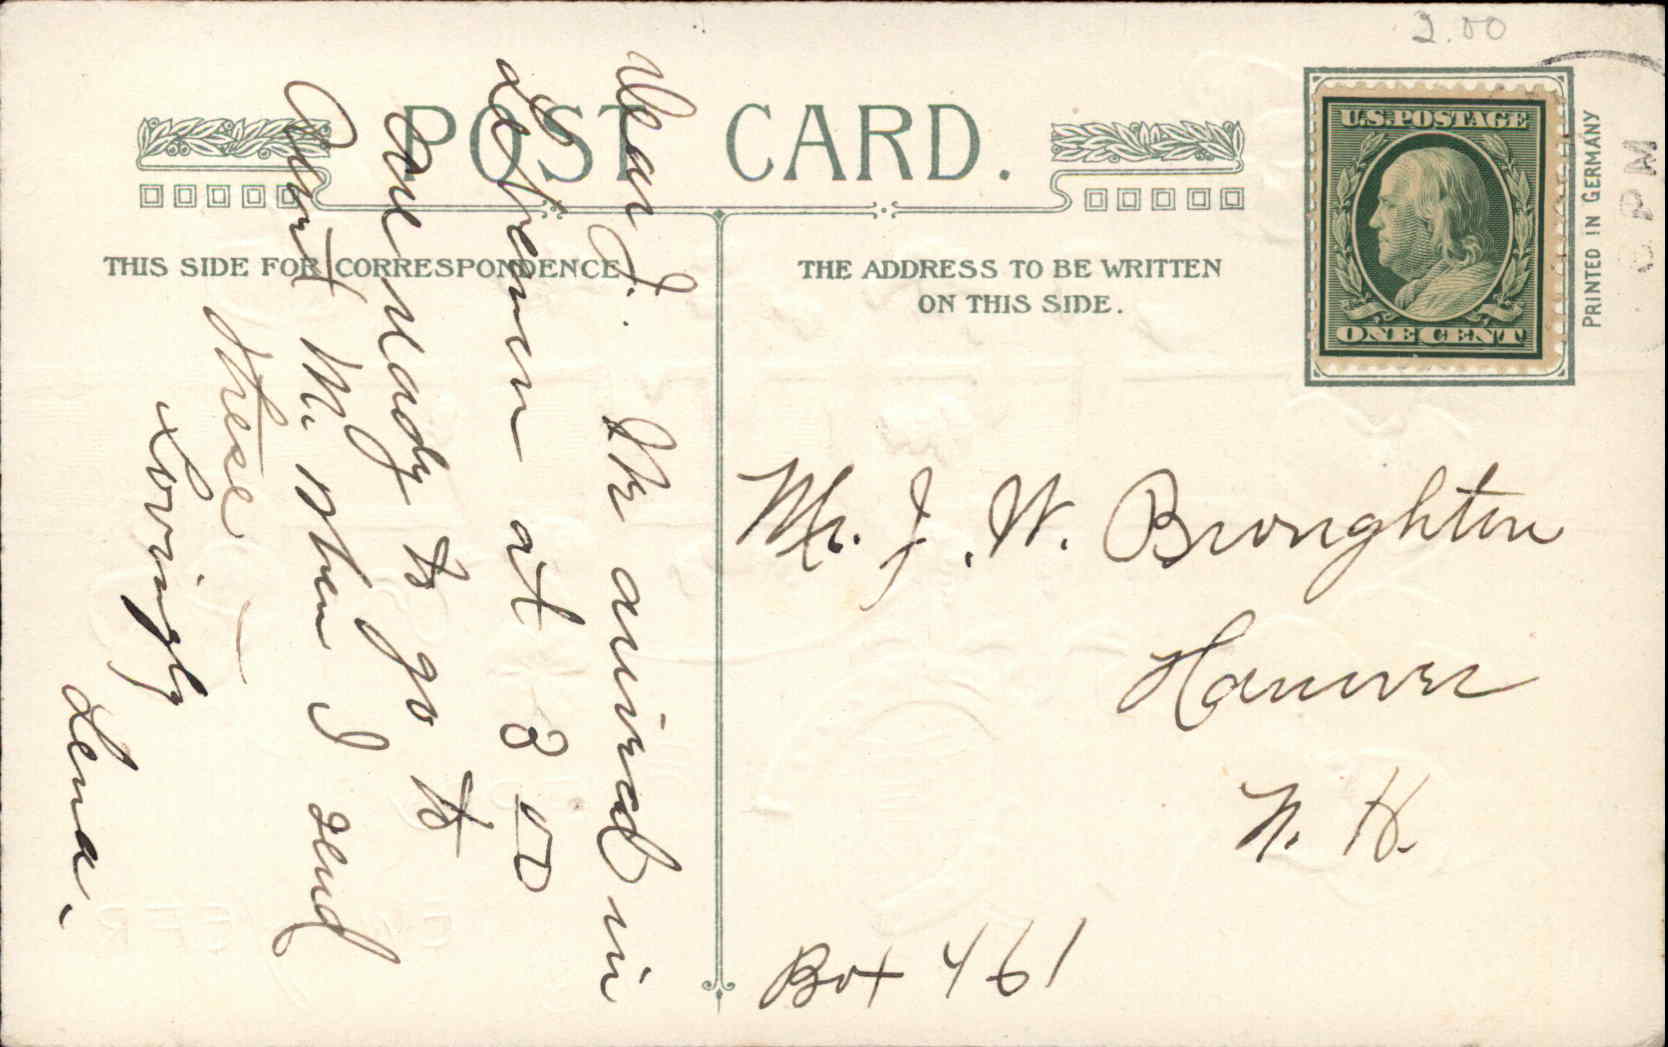 2.00
POST CARD.
THIS SIDE FOR CORRESPONDENCE
THE ADDRESS TO BE WRITTEN
ON THIS SIDE.
U.S. POSTAGE
ONE CENT
PRINTED IN GERMANY
PM
Dear J. We arrived in
at 3 00
are ready to go to
Aunt M. when I send
these
Lovingly
Lena.
Mr. J. W. Broughton
Hanover
N. H.
Box 461